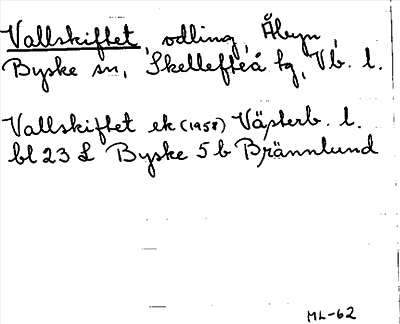 Vallskiftet, odling, Åbyn,
Byske sn, Skellefteå tg, Vb. l.
Vallskiftet ek (1958) Västerb. l.
bl 23 L Byske 5 b Brännlund
ML-62